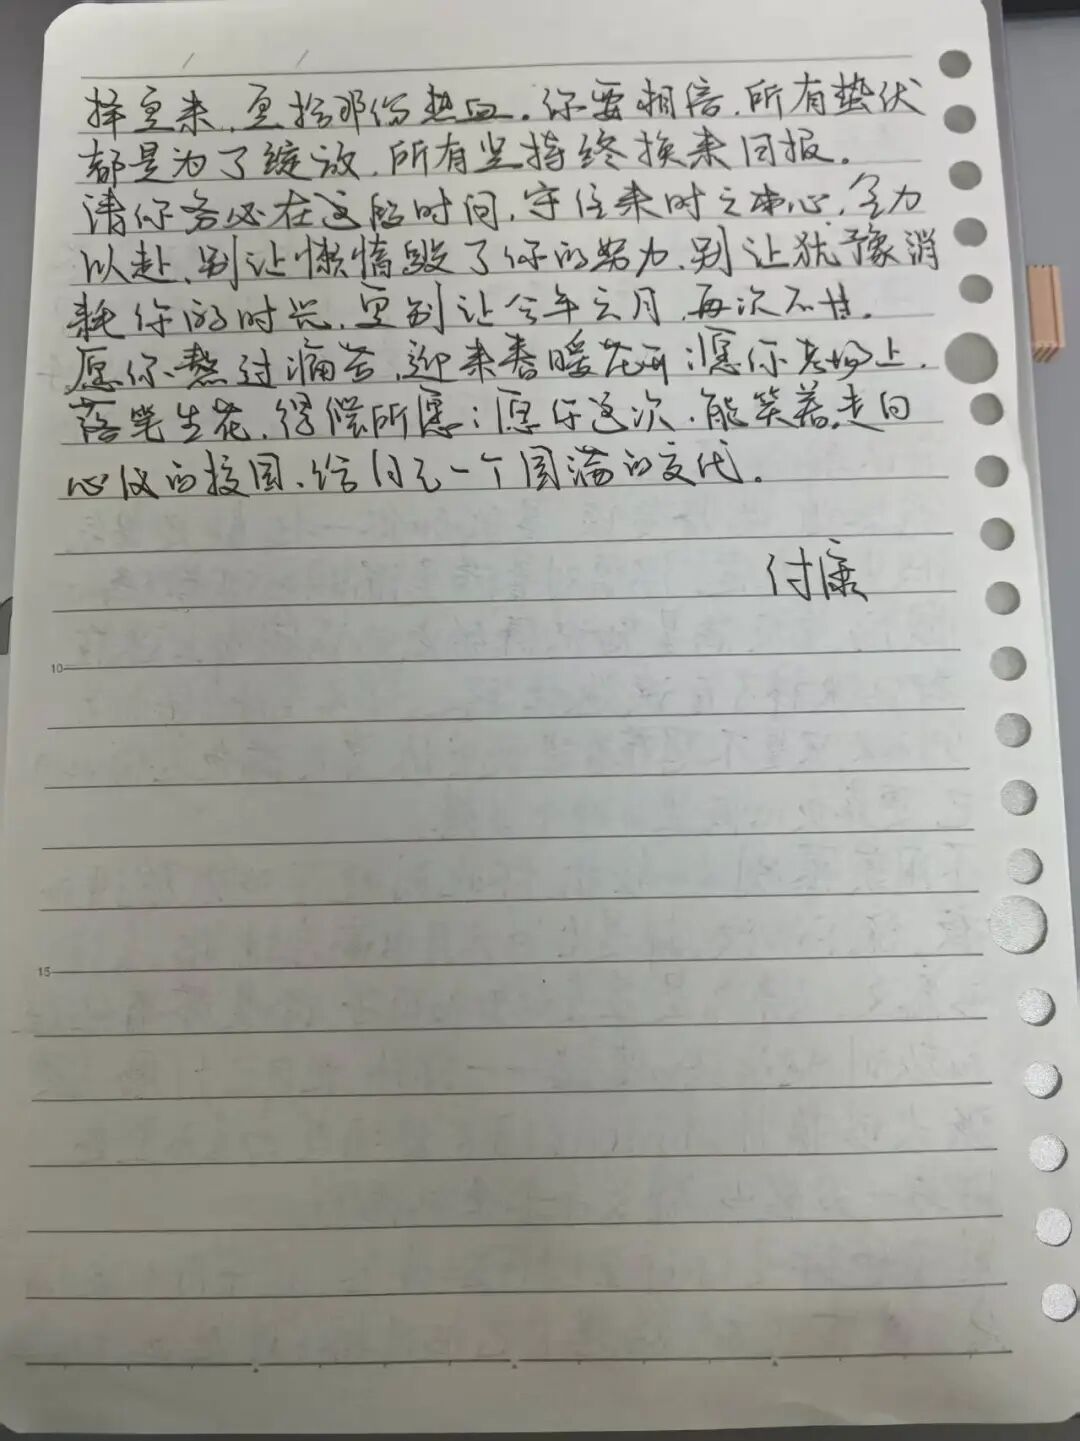 择重来,更拾那份热血。你要相信,所有蛰伏
都是为了绽放,所有坚持终换来回报。
请你务必在这段时间,守住来时之本心,全力
以赴,别让懒惰毁了你的努力,别让犹豫消
耗你的时光,更别让今年六月,再次不甘。
愿你熬过痛苦,迎来春暖花开;愿你考场上,
落笔生花,得偿所愿;愿你这次,能笑着走向
心仪的校园,给自己一个圆满的交代。
付康
10
15